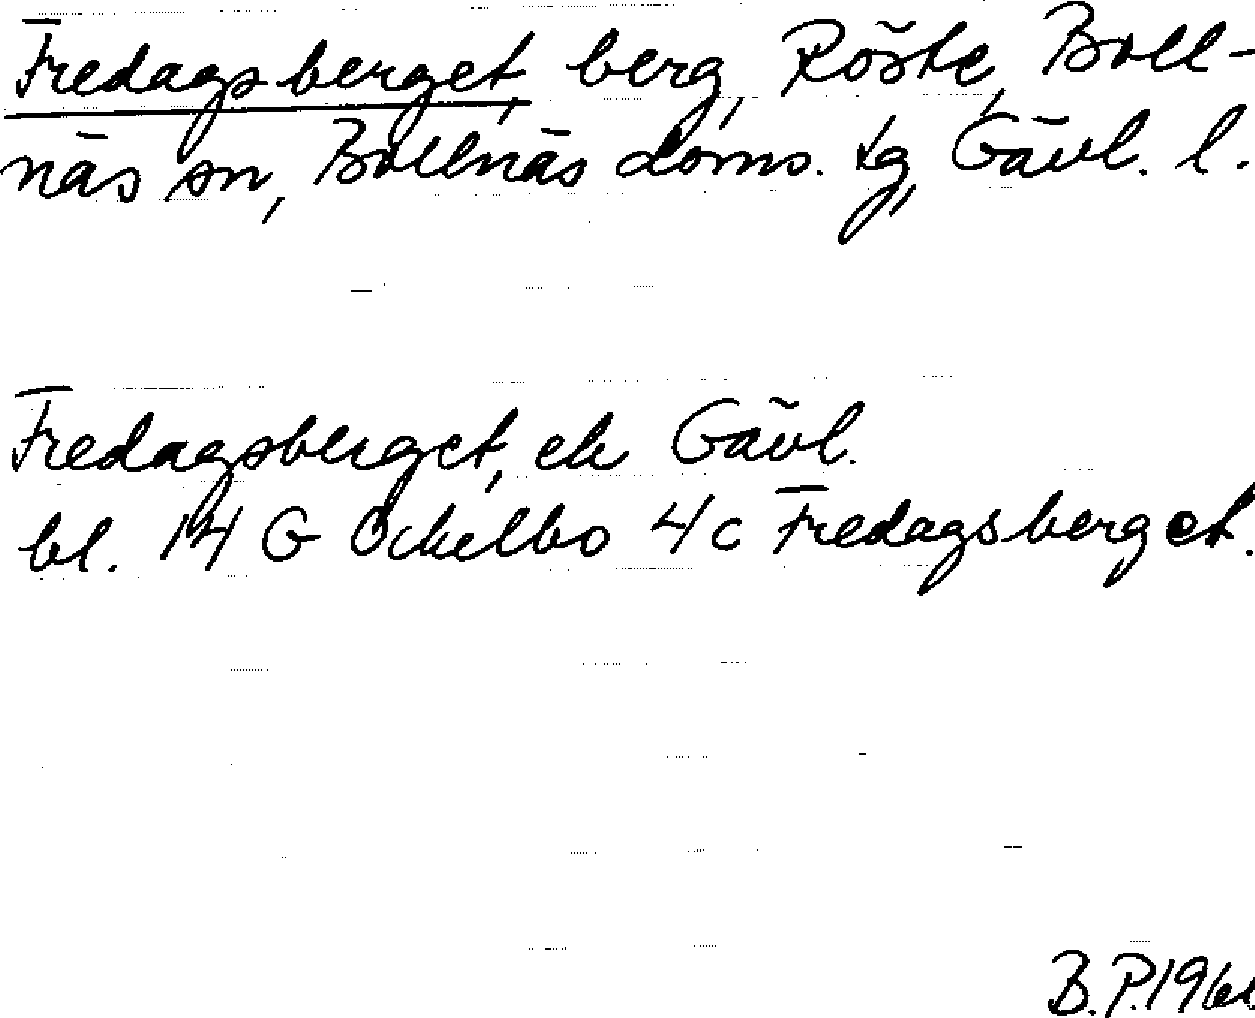 Fredagsberget, berg, Röste, Boll-
näs sn, Bollnäs doms. tg, Gävl. l.
Fredagsberget, ek Gävl.
bl. 14 G Ockelbo 4c Fredagsberget.
B.P.